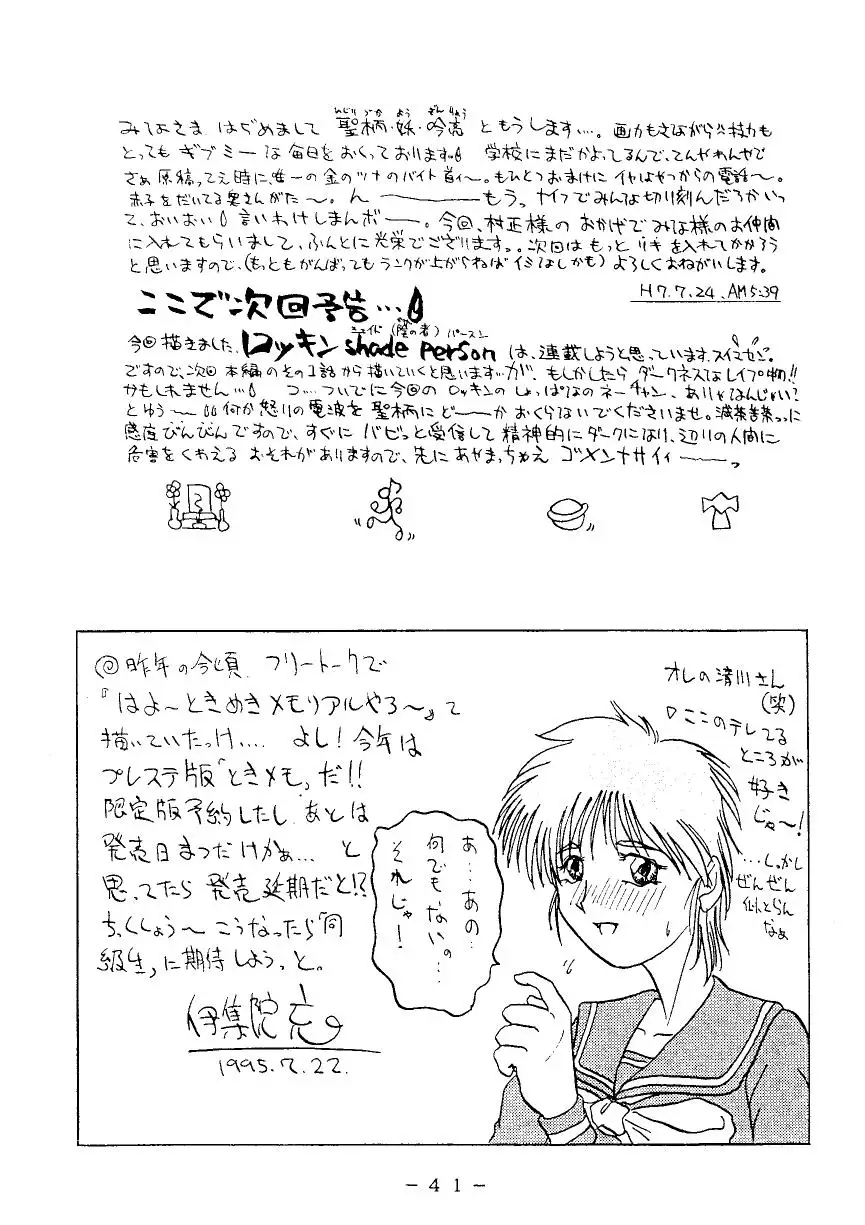 ひじりづか よう ぎんりょう
みなさま はぢめまして 聖柄・妖・吟亮 ともうします…。画力もさながら、技力も
とっても ギブミーな毎日をおくっております 学校にまだかよってるんで、てんやわんやで
さぁ原稿ってえ時に、唯一の金のツナのバイト首ィ〜。もひとつおまけに イヤなやつからの電話〜。
赤子をだいてる奥さんがた〜。ん――――もうっ ナイフでみんな切り刻んだろかいっ
て、おいおい 言いわけしまんボ――。今回、村正様のおかげでみな様のお仲間
に入れてもらいまして、ふんとに光栄でござります。。次回はもっとリキを入れてかかろう
と思いますので、(もっともがんばってもランクが上がらねばイミなしかも)よろしくおねがいします。
H7.7.24.AM5:39
ここで次回予告…
シェイド(陰の者)パースン
今回描きました、ロッキンshade personは、連載しようと思っています。スイマセン
ですので、次回 本編のその1話から描いていくと思います…が、もしかしたら ダークネスなレイプ物!!
かもしれません… つ…ついでに今回の ロッキンのしょっぱなのネーチャン、ありゃなんじゃい?
とゆう〜 何か怒りの電波を聖柄にど――かおくらないでくださいませ。滅茶苦茶っに
感度びんびんですので、すぐに バビっと受信して精神的にダークになり、辺りの人間に
危害をくわえる おそれがありますので、先にあやまっちゃえ ゴメンナサイィ――っ
◎昨年の今頃 フリートークで
『はよ〜ときめきメモリアルやろ〜』て
描いていたっけ…. よし!今年は
プレステ版「ときメモ」だ!!
限定版予約したし あとは
発売日まつだけかぁ… と
思ってたら 発売延期だと!?
ちっくしょう〜 こうなったら「同
級生」に期待しよう。っと。
伊集院 亮
1995.7.22.
オレの清川さん
(笑)
ここのテレてる
ところが
好き
じゃ〜!
…しっかし
ぜんぜん
似とらん
なぁ
あ…あの…
何でもない…の…
それじゃ!
-41-